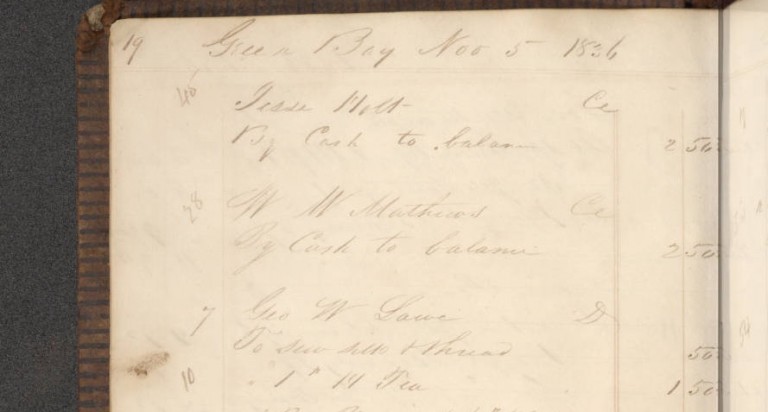 19 Green Bay Nov 5 1836
Jesse Holt Cr
By Cash to balance 2 50
28 W W Mathews Cr
By Cash to balance 2 50
7 Geo W Lawe D
To sew silk & thread 50
10 " 1 " 14 Tea 1 50